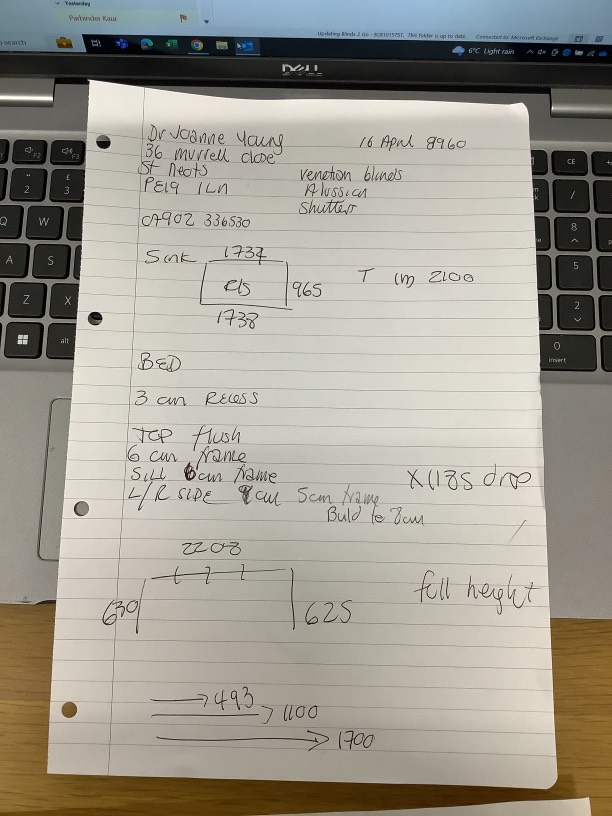 Yesterday
Parkinder Kaur
search
Updating Blinds 2 Go - B2B101575T. This folder is up to date Connected to: Microsoft Exchange
6°C Light rain
DELL
Dr Joanne Young 16 April 8960
36 Murrell close
St Neots venetian blinds
PE19 1LN
Shutters
07902 336530
Sink 1737
965 T 2100
1738
BED
3 cm Recess
TOP flush
6 cm frame
SILL 6cm frame X1185 drop
L/R SIDE cm 5cm frame
Build to 8cm
2208
630 625 full height
493
1100
1700
F2 F3
" 2 £ 3
Q W
A S
Z X
alt
CE
/
8
5
2
0
insert